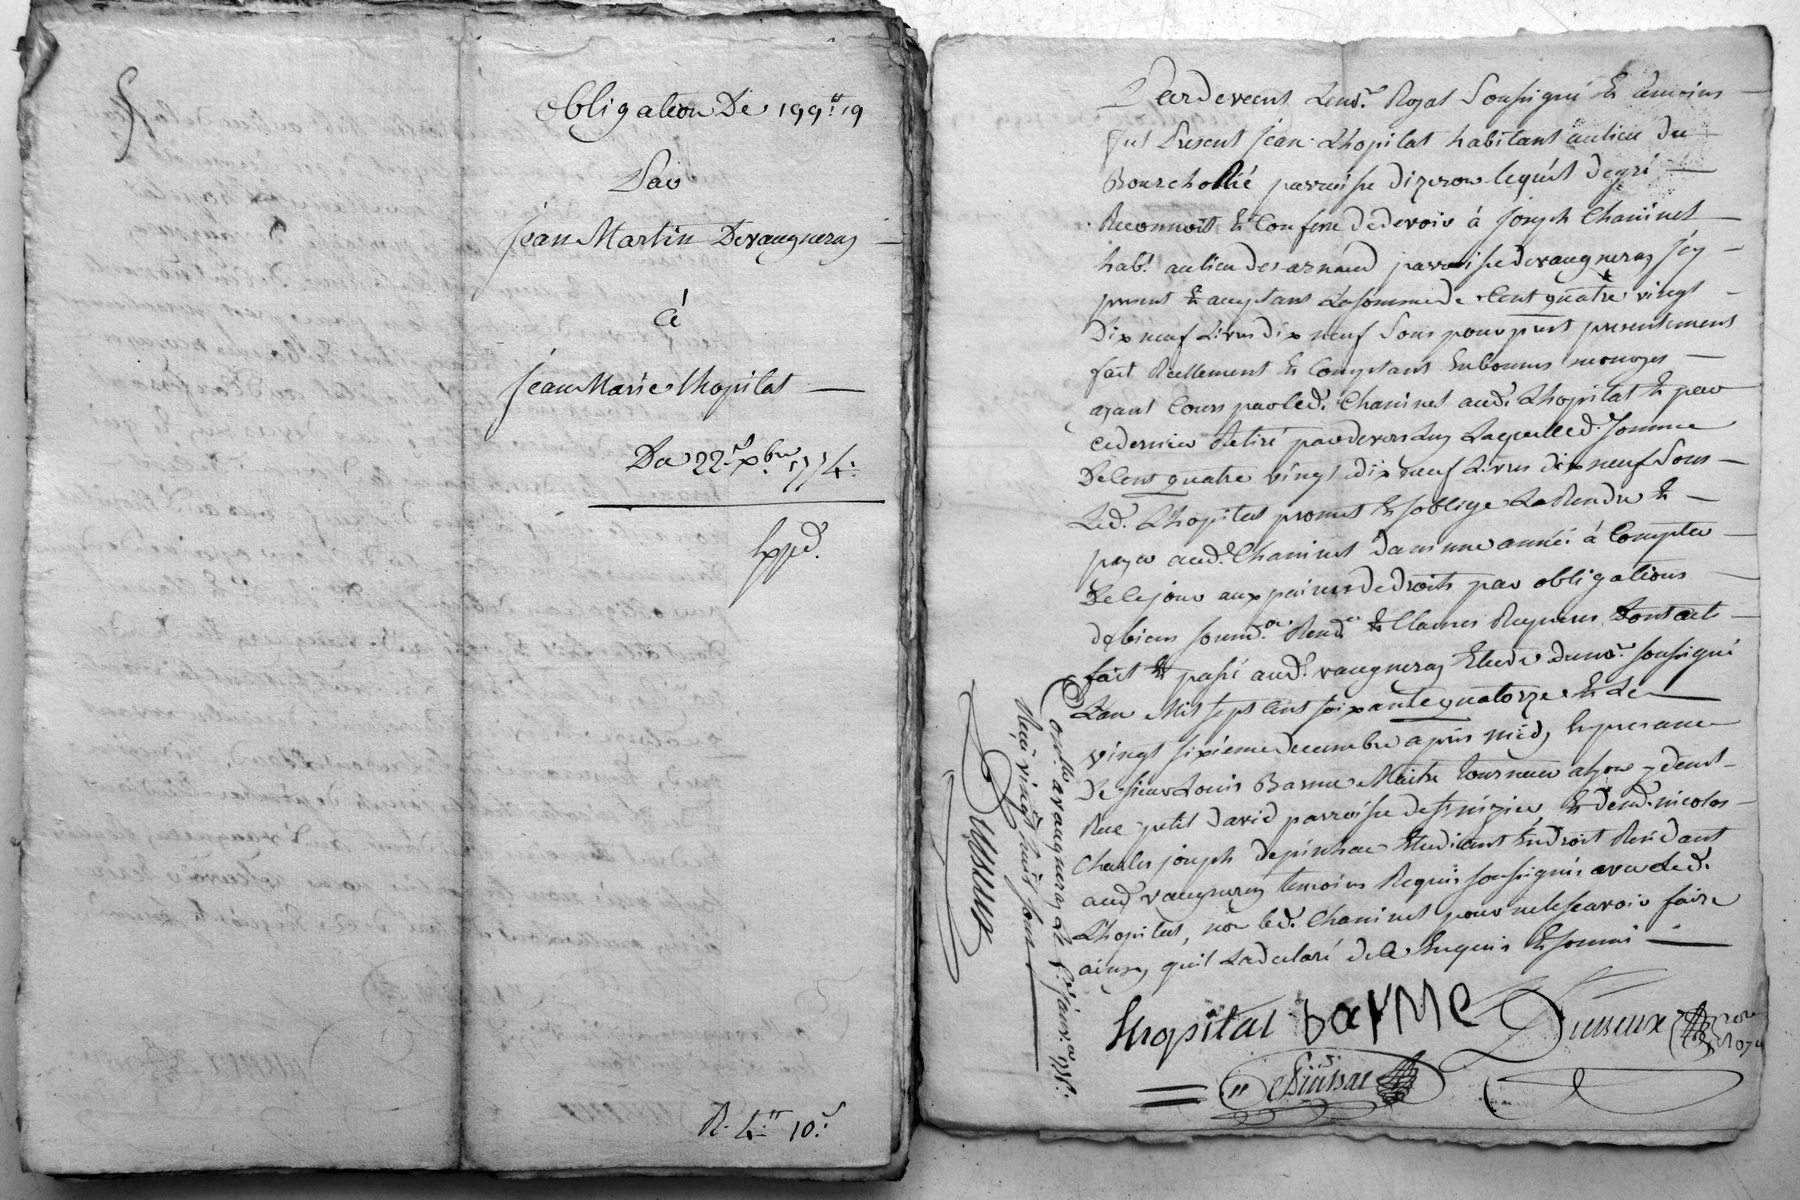 Obligation De 199tt 19
Par
jean Martin Devaugneray
à
jean Marie lhopital
Du 22e Xbre 1774.
Expd.
R. 4tt 10s
Pardevant Le no.re Royal Soussigné Et temoins
fut Present jean Lhopital habitant au lieu du
parroisse dizeron lequel de gré
Reconnoit Et Confesse de devoir à joseph Chaninel
habt. au lieu des arnaud parroisse de vaugneray jcy
present Et acceptant La somme de Cent quatre vingt
Dix neuf Livres dix neuf Sous pour prest presentement
fait Reellement Et Comptant En bonnes monoyes
ayant Cours par led. Chaninel aud. Lhopital Et par
ce dernier Retiré pardevers luy Laquelle d. somme
De Cent quatre vingt dix neuf Livres dix neuf Sous
Led. Lhopital promet Et soblige La Rendre Et
payer aud. Chaninel dans une année à Compter
De Ce jour aux peines de droits par obligations
de biens soumd.on Rend.on Et Clauses Requises Dont acte
fait Et passé aud. vaugneray Etude du no.re soussigné
Lan Mil sept Cent soixante quatorze Et Le
vingt sixieme decembre apres midy En presence
De sieur Louis Barme Maitre tourneur a lyon y demt.
Rue petit david parroisse de st nizier, Et de sr. nicolas
Charles joseph depinssac Etudiant En droit Residant
aud vaugneray temoins Requis soussignés avec led.
Lhopital, non led. Chaninel pour ne le scavoir faire
ainsy quil La declaré de ce Enquis Et sommé
lhopital barme Dusseux
Conllé a vaugneray Le janv.er 1775.
Reçu vingt huit sous
Dusseux